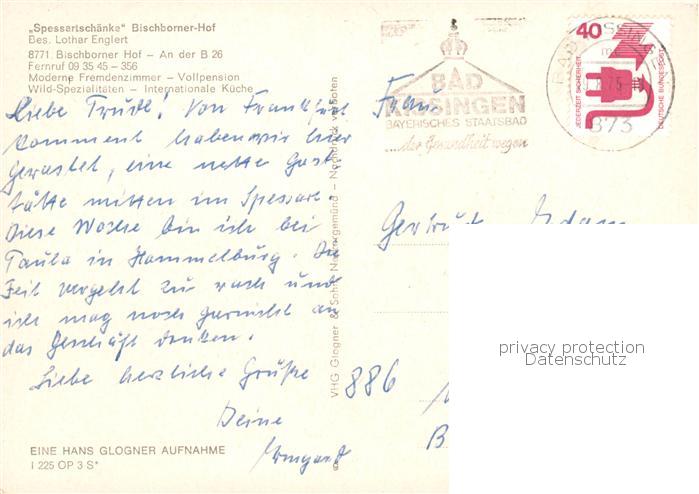 „Spessartschänke" Bischborner-Hof
Bes. Lothar Englert
8771 Bischborner Hof – An der B 26
Fernruf 09 35 45 – 356
Moderne Fremdenzimmer – Vollpension
Wild-Spezialitäten – Internationale Küche
Liebe Trude! Von Frankfurt
kommend haben wir hier
gerastet, eine nette Gast-
stätte mitten im Spessart
Diese Woche bin ich bei
Paula in Hammelburg. Die
Zeit vergeht zu rasch und
ich mag noch garnicht an
das Geschäft denken.
Liebe herzliche Grüße
Deine
Irmgard
EINE HANS GLOGNER AUFNAHME
I 225 OP 3 S*
VHG Glogner & Sohn, Neckargemünd – Nachdruck verboten
BAD
KISSINGEN
BAYERISCHES STAATSBAD
...der Gesundheit wegen
BAD KISSINGEN
873
40
JEDERZEIT SICHERHEIT
DEUTSCHE BUNDESPOST
Frau
Gertrud Adam
886
privacy protection
Datenschutz